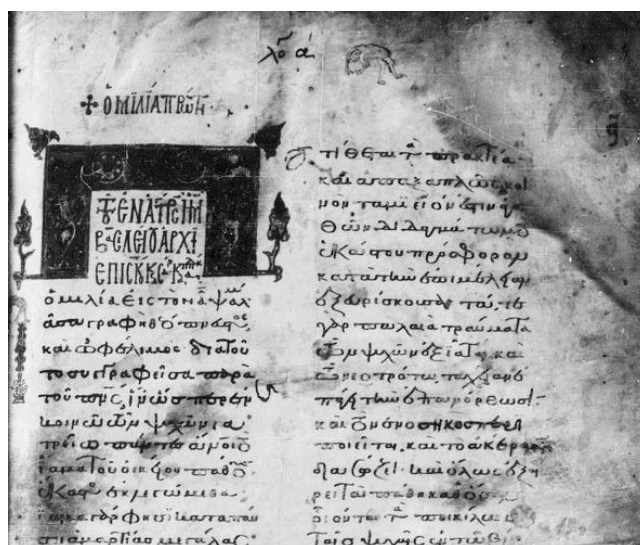 λό α
+ ὁμιλία πρώτη
τοῦ ἐν ἁγίοις πρς ἡμ
βασιλείου ἀρχι
ἐπισκ κεσαρ καππ
ὁμιλία εἰς τὸν α ψαλμ
ᾶσα γραφὴ θεόπνευστος
καὶ ὠφέλιμος· διὰ τοῦ
το συγγραφεῖσα παρὰ
τοῦ πνς, ἵν' ὥσπερ ἐν
κοινῶ τῶν ψυχῶν ἰα
τρείω πάντες ἄνοι τὸ
ἴαμα τοῦ οἰκείου πάθους
ἕκαστος ἐκλεγώμεθα·
ἴαμα γάρ φησι καταπαύ
σει ἁμαρτίας μεγάλας·
τίθεται τὰ πρακτέα
καὶ ἁπαξαπλῶς κοι
νὸν ταμιεῖόν ἐστιν ἀγα
θῶν διδαγμάτων τὸ
ἑκάστου πρόσφορον
κατὰ τὴν ἐπιμέλειαν
ἐξευρίσκουσα· τά τε
γὰρ παλαιὰ τραύματα
τῶν ψυχῶν ἐξιᾶται, καὶ
τῶ νεοτρώτω ταχεῖαν ἐπά
τὴν ἐπανόρθωσιν
καὶ τὸ νενοσηκὸς περι
ποιεῖται, καὶ τὸ ἀκέραιον
διασώζει· καὶ ὅλως ἐξαι
ρεῖ τὰ πάθη καθόσον
οἷόν τε τὰ ποικίλως
ταῖς ψυχαῖς ἐν τῶ βί